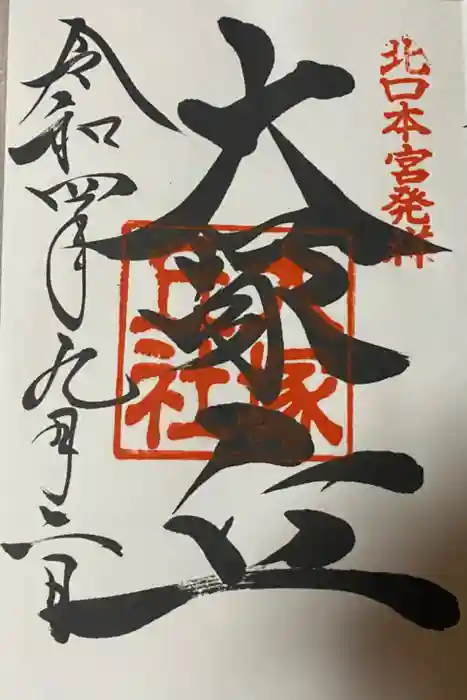 北口本宮発祥
大塚丘
大塚
丘社
令和四年九月二日